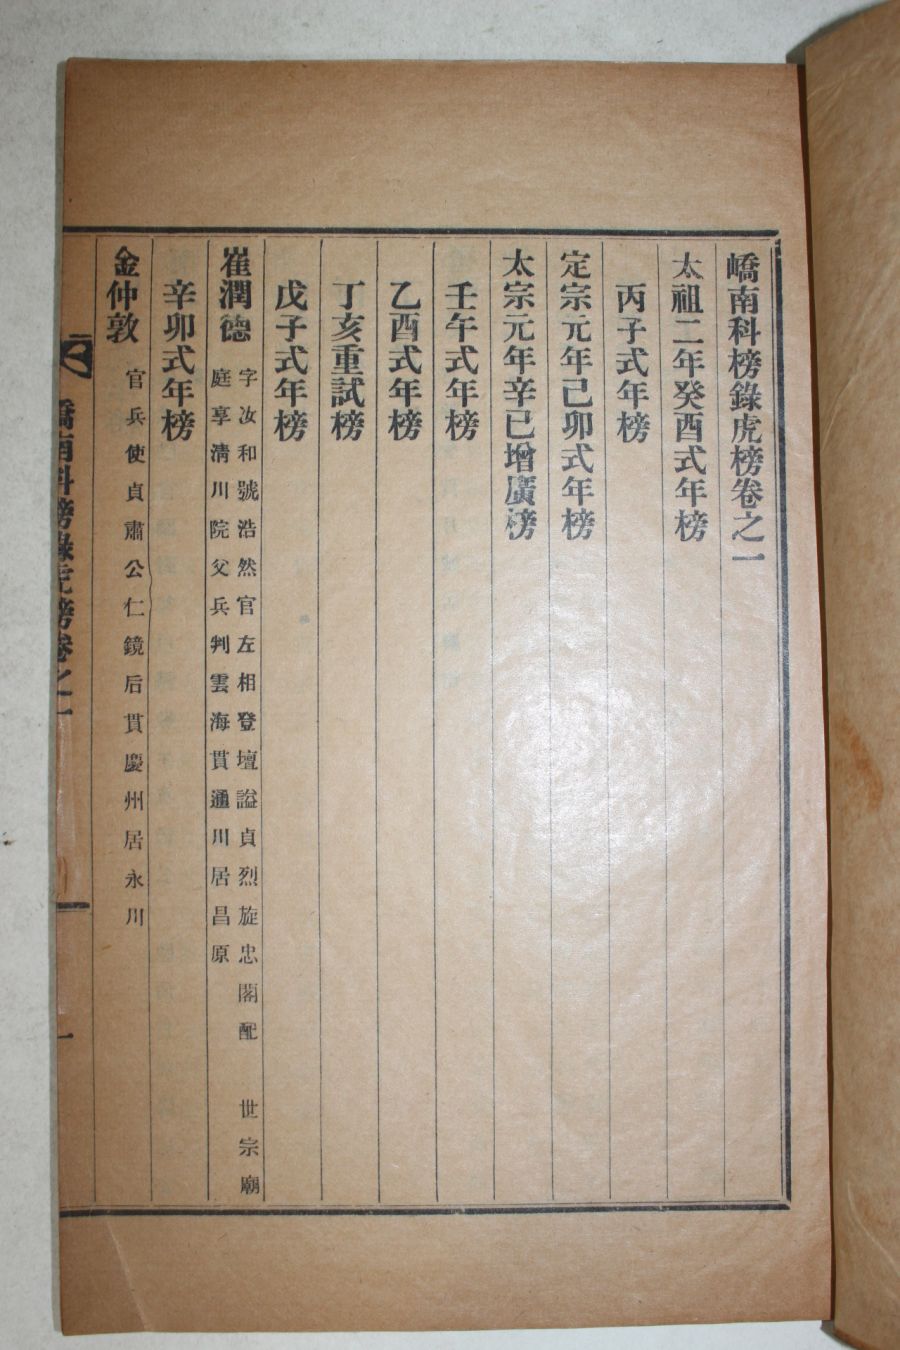 嶠南科榜錄虎榜卷之一
太祖二年癸酉式年榜
丙子式年榜
定宗元年己卯式年榜
太宗元年辛巳增廣榜
壬午式年榜
乙酉式年榜
丁亥重試榜
戊子式年榜
崔潤德 字汝和號浩然官左相登壇謚貞烈旌忠閣配 世宗廟
庭享清川院父兵判雲海貫通川居昌原
辛卯式年榜
金仲敦 官兵使貞肅公仁鏡后貫慶州居永川
嶠南科榜錄虎榜卷之一 一